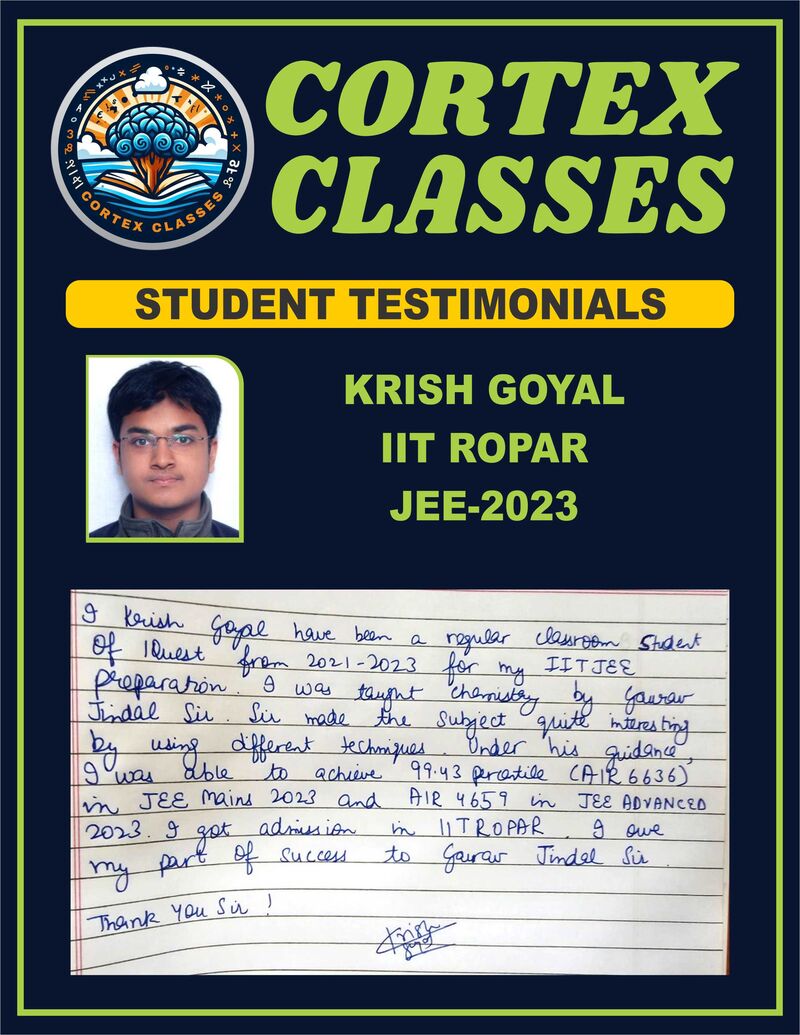 CORTEX
CLASSES
CORTEX CLASSES
STUDENT TESTIMONIALS
KRISH GOYAL
IIT ROPAR
JEE-2023
I Krish Goyal have been a regular classroom Student
Of IQuest from 2021-2023 for my IITJEE
preparation. I was taught chemistry by Gaurav
Jindal Sir. Sir made the subject quite interesting
by using different techniques. Under his guidance,
I was able to achieve 99.43 percentile (AIR 6636)
in JEE Mains 2023 and AIR 4659 in JEE ADVANCED
2023. I got admission in IITROPAR. I owe
my part of success to Gaurav Jindal Sir.
Thank You Sir!
Krish
Goyal